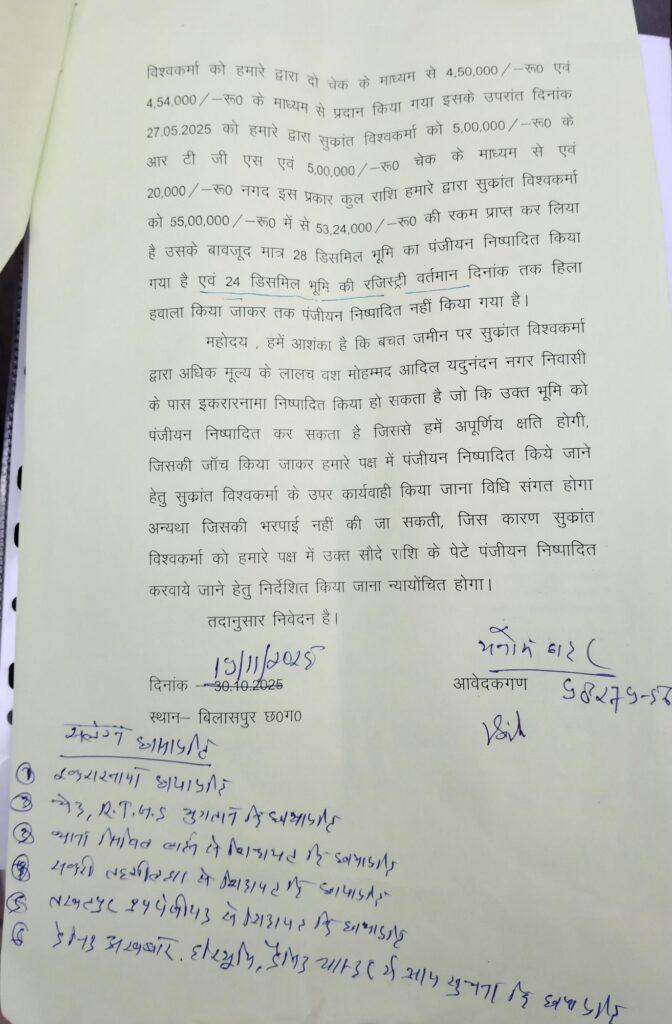 विश्वकर्मा को हमारे द्वारा दो चेक के माध्यम से 4,50,000/–रू0 एवं
4,54,000/–रू0 के माध्यम से प्रदान किया गया इसके उपरांत दिनांक
27.05.2025 को हमारे द्वारा सुकांत विश्वकर्मा को 5,00,000/–रू0 के
आर टी जी एस एवं 5,00,000/–रू0 चेक के माध्यम से एवं
20,000/–रू0 नगद इस प्रकार कुल राशि हमारे द्वारा सुकांत विश्वकर्मा
को 55,00,000/–रू0 में से 53,24,000/–रू0 की रकम प्राप्त कर लिया
है उसके बावजूद मात्र 28 डिसमिल भूमि का पंजीयन निष्पादित किया
गया है एवं 24 डिसमिल भूमि की रजिस्ट्री वर्तमान दिनांक तक हिला
हवाला किया जाकर तक पंजीयन निष्पादित नहीं किया गया है।
महोदय , हमें आशंका है कि बचत जमीन पर सुकांत विश्वकर्मा
द्वारा अधिक मूल्य के लालच वश मोहम्मद आदिल यदुनंदन नगर निवासी
के पास इकरारनामा निष्पादित किया हो सकता है जो कि उक्त भूमि को
पंजीयन निष्पादित कर सकता है जिससे हमें अपूर्णिय क्षति होगी,
जिसकी जॉच किया जाकर हमारे पक्ष में पंजीयन निष्पादित किये जाने
हेतु सुकांत विश्वकर्मा के उपर कार्यवाही किया जाना विधि संगत होगा
अन्यथा जिसकी भरपाई नहीं की जा सकती, जिस कारण सुकांत
विश्वकर्मा को हमारे पक्ष में उक्त सौदे राशि के पेटे पंजीयन निष्पादित
करवाये जाने हेतु निर्देशित किया जाना न्यायोंचित होगा।
तदानुसार निवेदन है।
19/11/2025
दिनांक –30.10.2025
आवेदकगण
स्थान– बिलासपुर छ0ग0
छायाप्रति
① इकरारनामा छायाप्रति
② चेक, R.T.G.S भुगतान कि छायाप्रति
③ थाना में शिकायत कि छायाप्रति
④ सकरी में शिकायत कि छायाप्रति
⑤ तखतपुर उपपंजीयक में शिकायत कि छायाप्रति
⑥ दैनिक अखबार, हरिभूमि, दैनिक में आम सूचना कि छायाप्रति